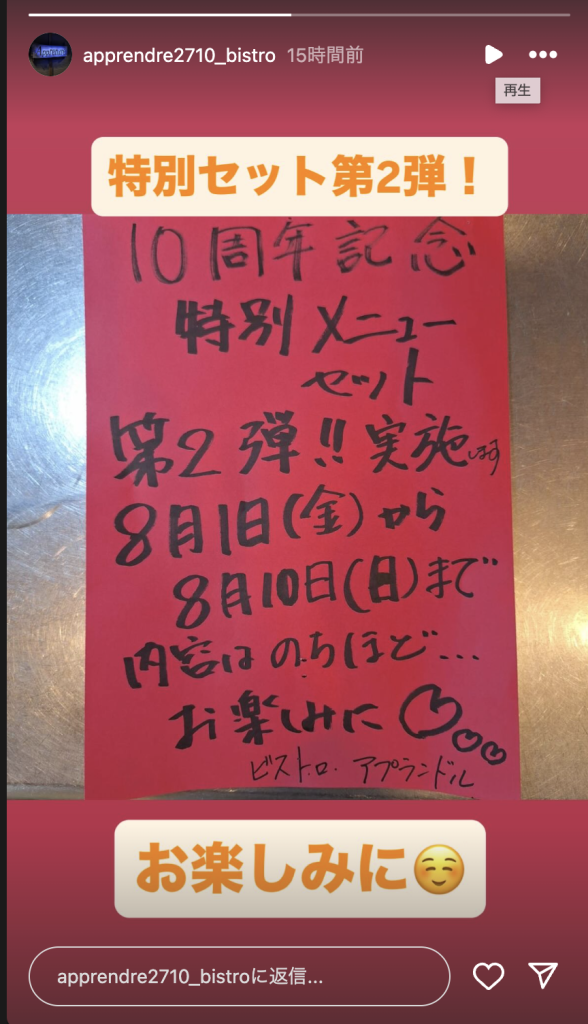 apprendre2710_bistro 15時間前
再生
特別セット第2弾！
10周年記念
特別メニュー
セット
第2弾!!実施します
8月1日(金)から
8月10日(日)まで
内容はのちほど...
お楽しみに
ビストロ アプランドル
お楽しみに☺️
apprendre2710_bistroに返信...